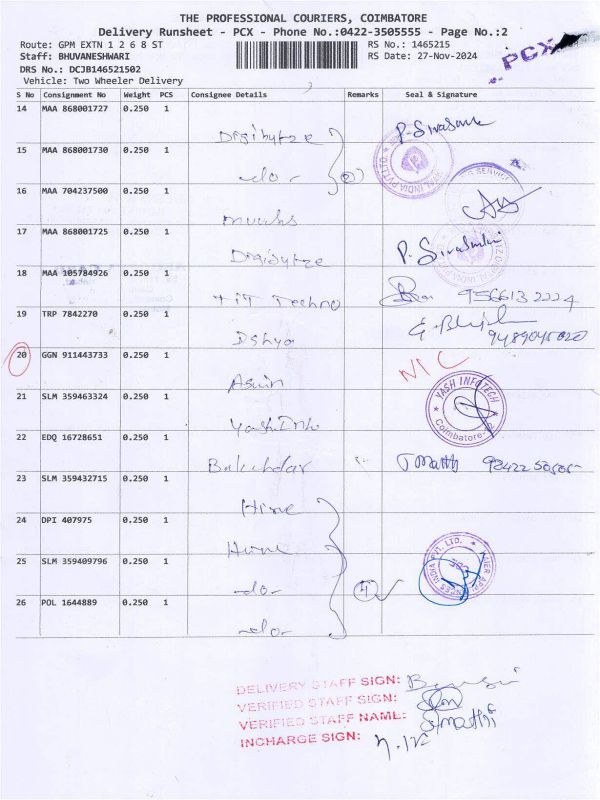 THE PROFESSIONAL COURIERS, COIMBATORE
Delivery Runsheet - PCX - Phone No.:0422-3505555 - Page No.:2
Route: GPM EXTN 1 2 6 8 ST
RS No.: 1465215
Staff: BHUVANESHWARI
RS Date: 27-Nov-2024
DRS No.: DCJB146521502
Vehicle: Two Wheeler Delivery
PCX
S No Consignment No Weight PCS Consignee Details Remarks Seal & Signature
14 MAA 868001727 0.250 1
Digibytze P. Sivasank
15 MAA 868001730 0.250 1
-do- 2
16 MAA 704237500 0.250 1
17 MAA 868001725 0.250 1
Digibytze P. Sivasank
18 MAA 105784926 0.250 1
TiT Techno 956613 2224
19 TRP 7842270 0.250 1
Dshya 9489045020
20 GGN 911443733 0.250 1
Aswin NIC
21 SLM 359463324 0.250 1
Yash Info YASH INFOTECH Coimbatore
22 EDQ 16728651 0.250 1
23 SLM 359432715 0.250 1
Hime
24 DPI 407975 0.250 1
Hime
25 SLM 359409796 0.250 1
-do- 4
26 POL 1644889 0.250 1
-do-
DELIVERY STAFF SIGN:
VERIFIED STAFF SIGN:
VERIFIED STAFF NAME:
INCHARGE SIGN: